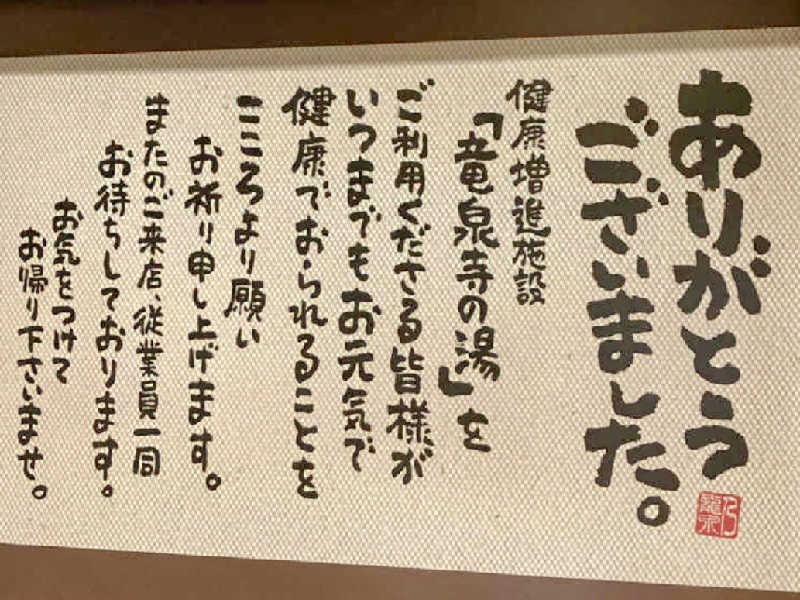 ありがとう
ございました。
健康増進施設
「竜泉寺の湯」を
ご利用くださる皆様が
いつまでもお元気で
健康でおられることを
こころより願い
お祈り申し上げます。
またのご来店、従業員一同
お待ちしております。
お気をつけて
お帰り下さいませ。